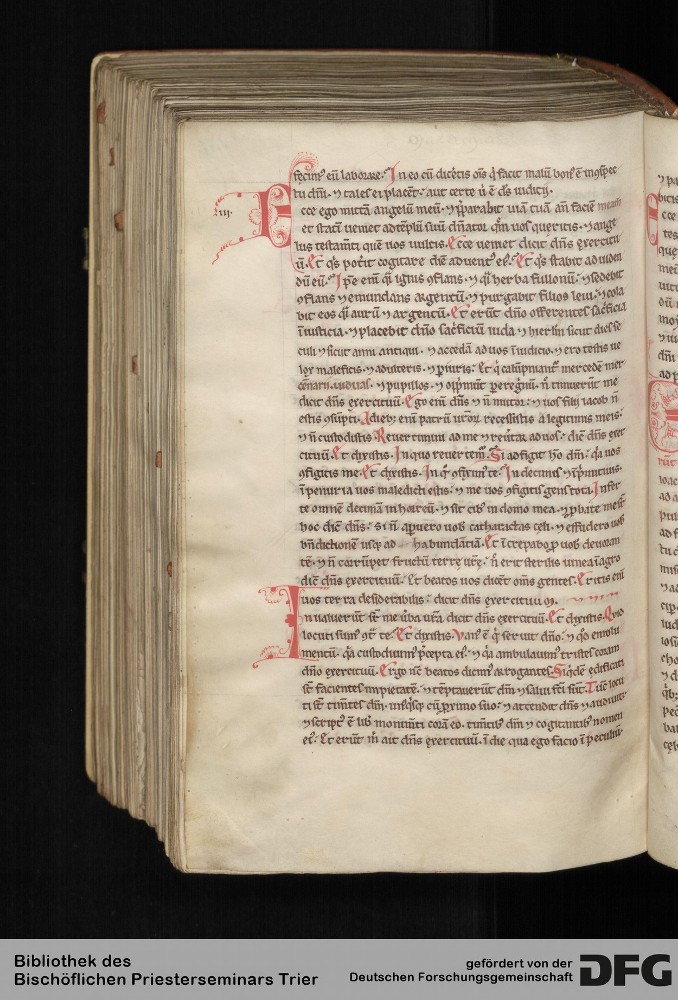 fecim⁹ eū laborare. In eo cū dicētis oīs q̇ facit malū bon⁹ ē in ↄspec
tu dn̄i. ⁊ tales ei placēt. aut certe ū ē ds̄ iudicij.
.iij.
Ecce ego mittā angelū meū. ⁊ p̄parabit uiā tuā an̄ faciē meam
et statī ueniet ad tēplū suū dn̄ator qm̄ uos queritis. ⁊ ange
lus testam̄ti quē uos uultis. Ecce ueniet dicit dn̄s exercitu
ū. Et q̇s pot̄it cogitare diē aduent⁹ ei⁹. Et q̇s stabit ad uidēn
dū eū. Ip̄e eni q̇i ignis ↄflans. ⁊ q̇i herba fullonū. ⁊ sedebit
ↄflans ⁊ emundans argentū. ⁊ purgabit filios leui. ⁊ cola
bit eos q̇i aurū ⁊ argentū. Et erūt dn̄o offerentes sac̄ficia
ī iusticia. ⁊ placebit dn̄o sac̄ficiū iuda ⁊ hierl̄m sicut dies se
culi ⁊ sicut anni antiqui. ⁊ accedā ad uos ī iudicio. ⁊ ero testis ue
lox maleficis. ⁊ adulteris. ⁊ ꝑiuris. Et q̇ calūpniant̄ mercedē mer
cēnarij. uiduas. ⁊ pupillos. ⁊ opp̄mūt peregⁱnū. n̄ timuerūt me
dicit dn̄s exercituū. Ego eni dn̄s ⁊ n̄ mutor. ⁊ uos filij iacob n̄
estis ↄsūpti. A dieb⁹ eni patrū ur̄or̄ recessistis a legitimis meis.
⁊ n̄ custodistis. Reuertimini ad me ⁊ reu̇tar ad uos. dic̄ dn̄s exer
cituū. Et dixistis. In quo reuertem̄. Si adfigit hō dm̄. q̇a uos
ↄfigitis me. Et dixistis. In q̇ ↄfixim⁹ te. In decimis ⁊ ī p̄mitiuis.
ī penuria uos maledicti estis. ⁊ me uos ↄfigitis gens tota. Infer
te omnē decimā in horreū. ⁊ sit cib⁹ in domo mea. ⁊ ꝓbate me sr̄
hoc dic̄ dn̄s. Si n̄ apuero uob̄ catharactas celi. ⁊ effūdero uob̄
bn̄dictionē usq; ad habundātiā. Et īcrepabo ꝓ uob̄ deuoran
tē. ⁊ n̄ corrūpet fructū terre ur̄e. n̄ erit sterilis uinea ī agro
dic̄ dn̄s exercituū. Et beatos uos dicēt om̄s gentes. Eritis eni
uos terra desiderabilis. dicit dn̄s exercituū
Inualuerūt sr̄ me ūba ur̄a dicit dn̄s exercituū. Et dixistis. Quid
locuti sum⁹ ↄt̄ te. Et dixistis. Van⁹ ē q̇ seruit dn̄o. ⁊ qd̄ emolu
mentū. q̇a custodiuim⁹ p̄cepta ei⁹. ⁊ q̇a ambulauim⁹ tristes coram
dn̄o exercituū. Ergo nc̄ beatos dicim⁹ arrogantes. Siq̇dē edificati
st̄ facientes impietatē. ⁊ tēptauerūt dm̄ ⁊ salui fc̄i sūt. Tūc locu
ti st̄ timētes dm̄. un⁹q̇sq; cū ꝓximo suo. ⁊ attendit dn̄s ⁊ audiuit.
⁊ script⁹ ē lib̄ monimēti corā eo. timētib⁹ dm̄ ⁊ cogitantib⁹ nomen
ei⁹. Et erūt m̄ ait dn̄s exercituū. ī die qua ego facio ī peculiū.
Bibliothek des
Bischöflichen Priesterseminars Trier
gefördert von der
Deutschen Forschungsgemeinschaft
DFG